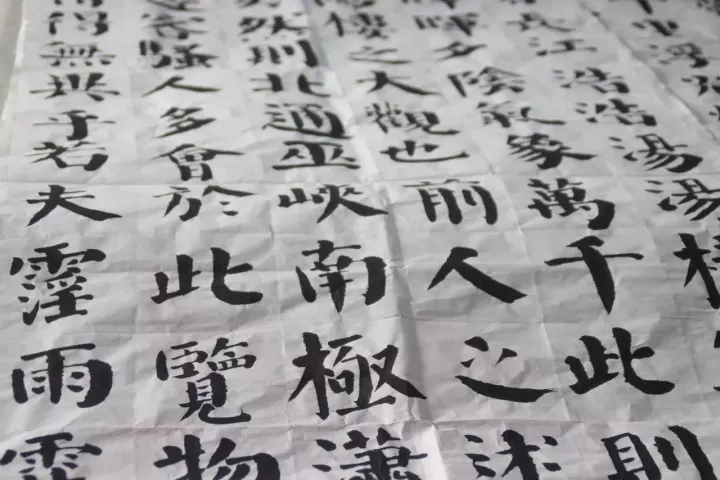 江浩浩湯湯
暉夕陰氣象萬千此則
樓之大觀也前人之述
然則北通巫峽南極瀟
客騷人多會於此覽物
得無異乎若夫霪雨霏